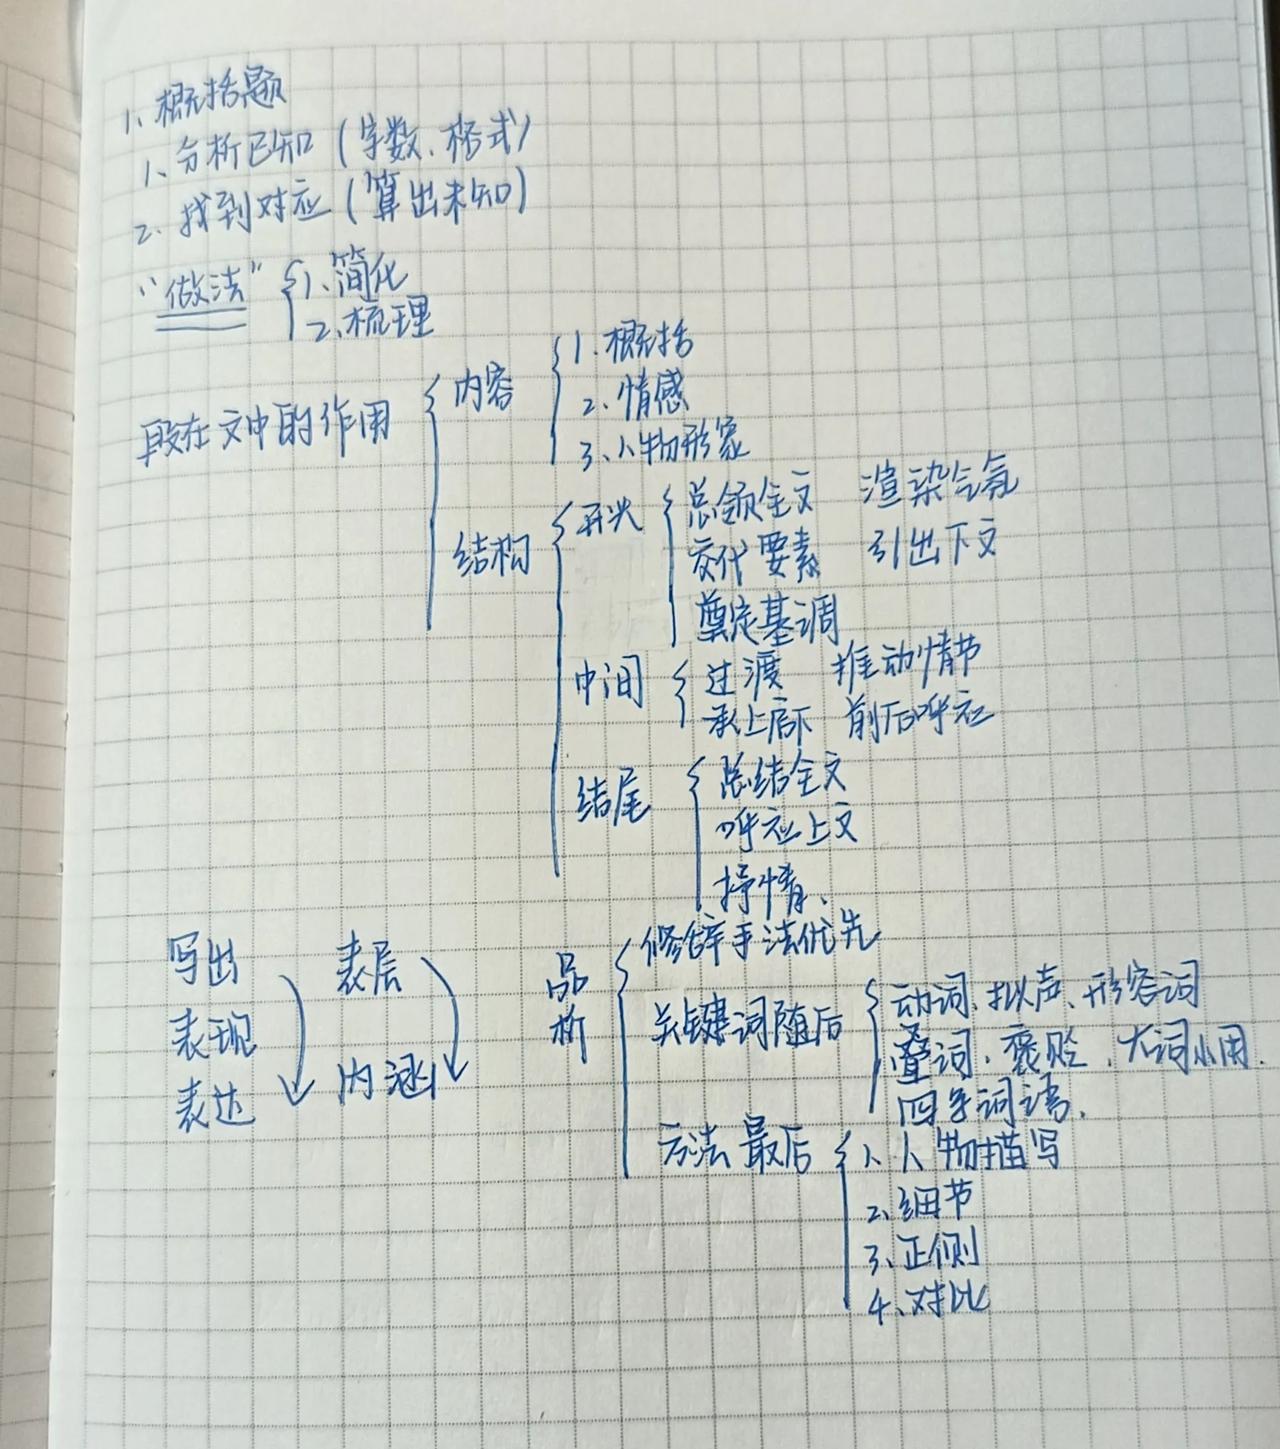 1、概括题
1、分析已知（字数、格式）
2、找到对应（算出未知）
“做法” 1、简化
2、梳理
段在文中的作用 内容 1、概括
2、情感
3、人物形象
结构 开头 总领全文 渲染气氛
交代要素 引出下文
奠定基调
中间 过渡 推动情节
承上启下 前后呼应
结尾 总结全文
呼应上文
抒情、
写出 表层 品析 修辞手法优先
表现 关键词随后 动词、拟声、形容词
叠词、褒贬、大词小用、
表达 内涵 四字词语、
方法最后 1、人物描写
2、细节
3、正侧
4、对比